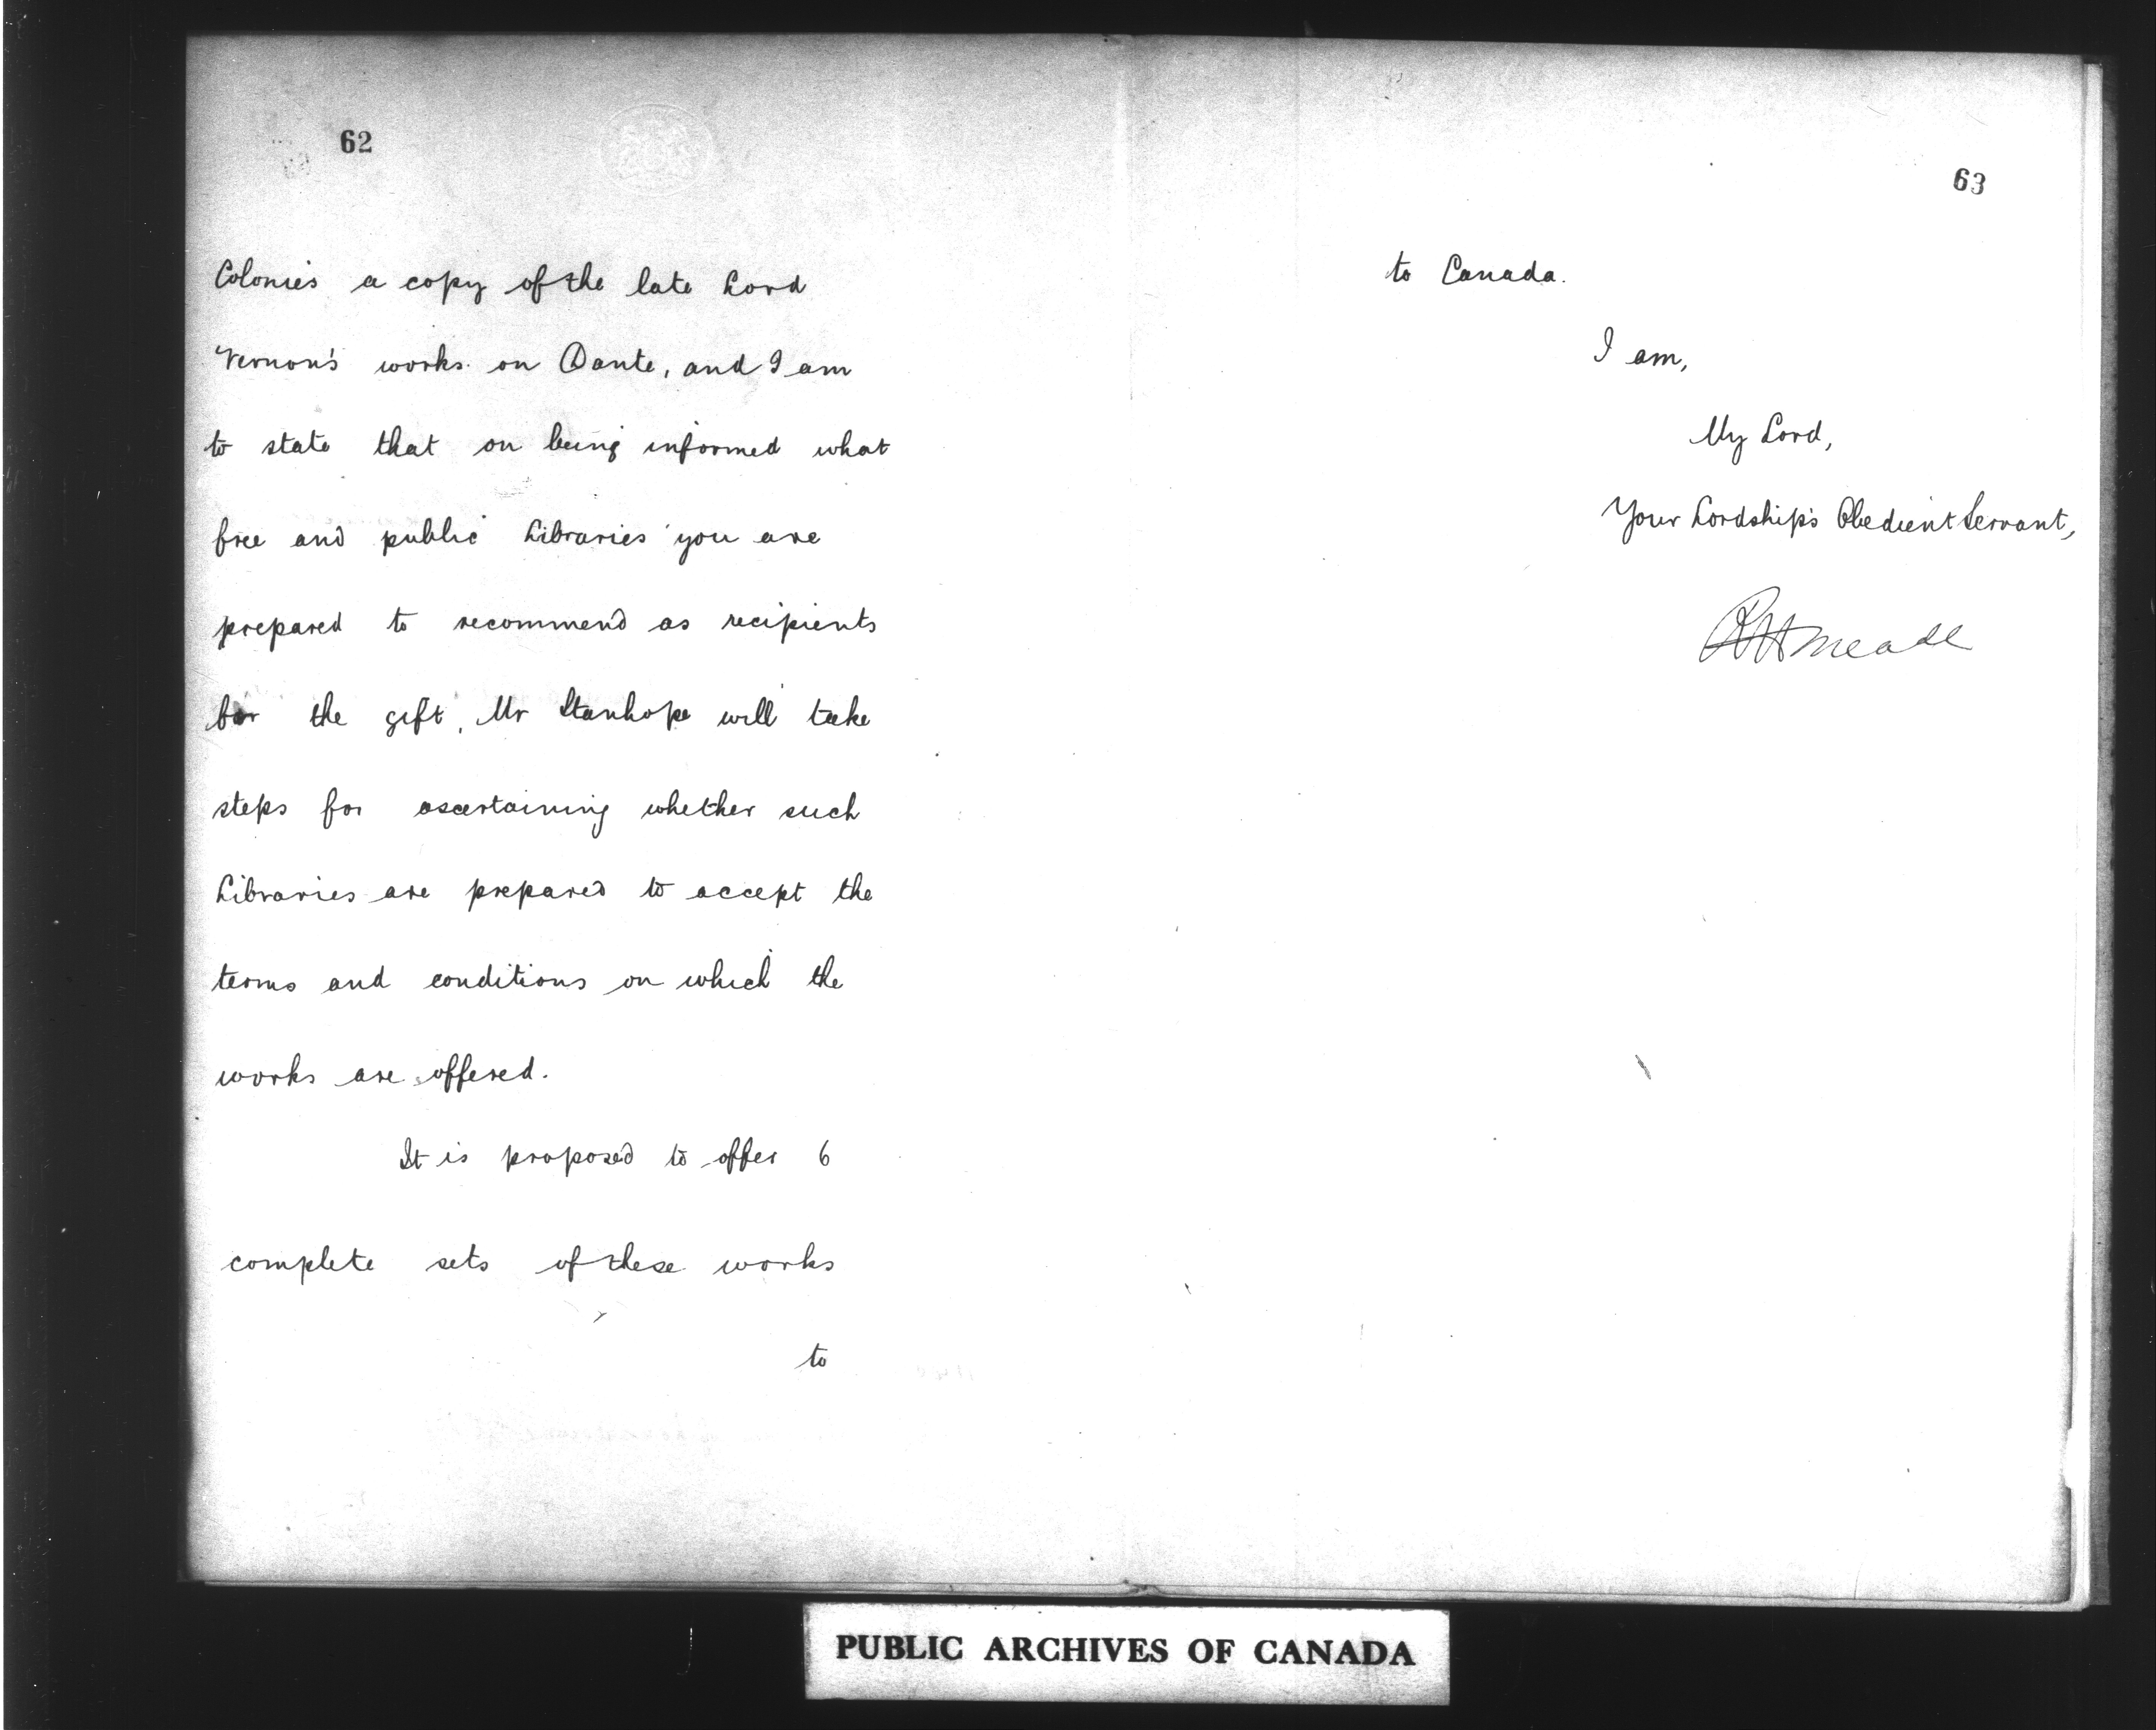 62
Colonies a copy of the late Lord
Vernon's works on Dante, and I am
to state that on being informed what
free and public Libraries you are
prepared to recommend as recipients
for the gift, Mr Stanhope will take
steps for ascertaining whether such
Libraries are prepared to accept the
terms and conditions on which the
works are offered.
It is proposed to offer 6
complete sets of these works
to
63
to Canada.
I am,
My Lord,
Your Lordship's Obedient Servant,
RHMeade
PUBLIC ARCHIVES OF CANADA